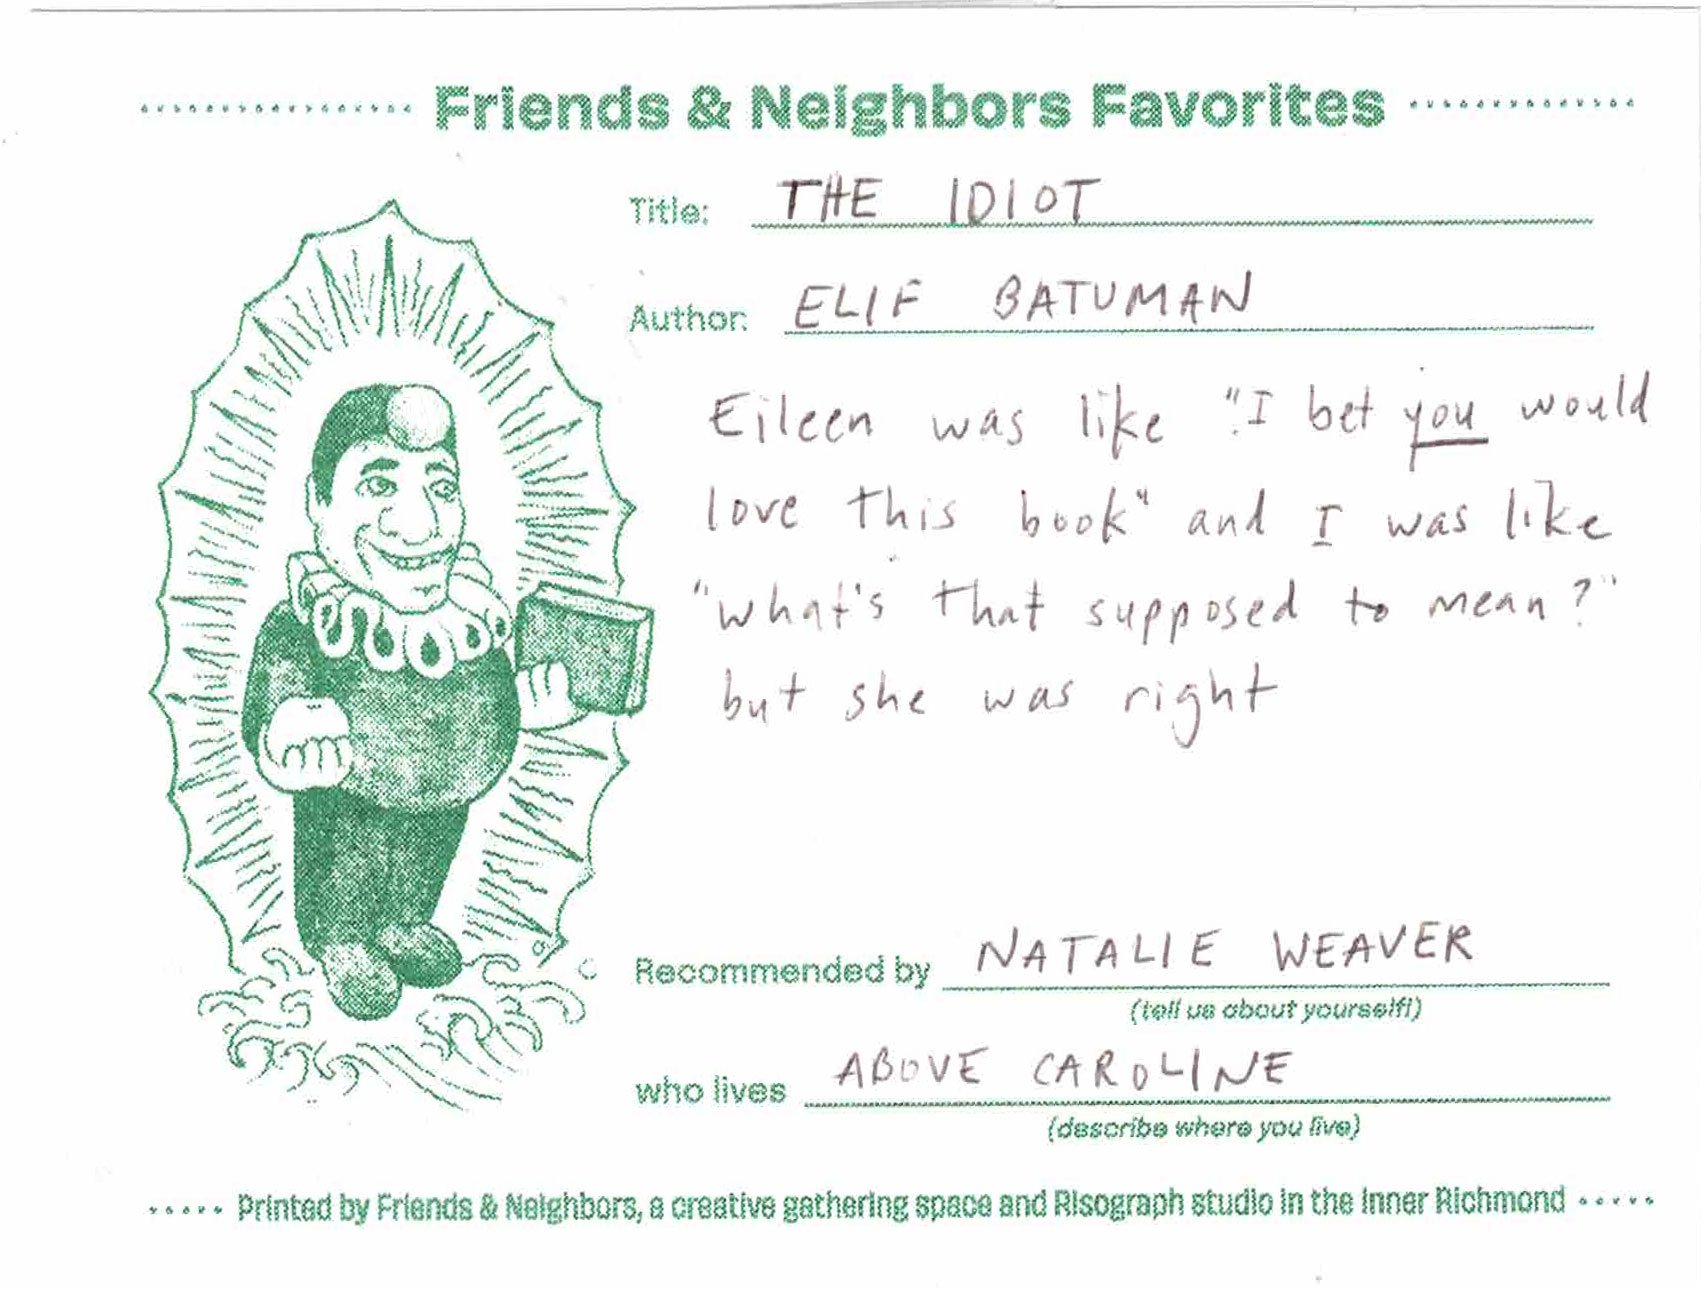 Friends & Neighbors Favorites
Title: THE IDIOT
Author: ELIF BATUMAN
Eileen was like "I bet you would
love this book" and I was like
"what's that supposed to mean?"
but she was right
Recommended by NATALIE WEAVER
(tell us about yourself!)
who lives ABOVE CAROLINE
(describe where you live)
Printed by Friends & Neighbors, a creative gathering space and Risograph studio in the Inner Richmond